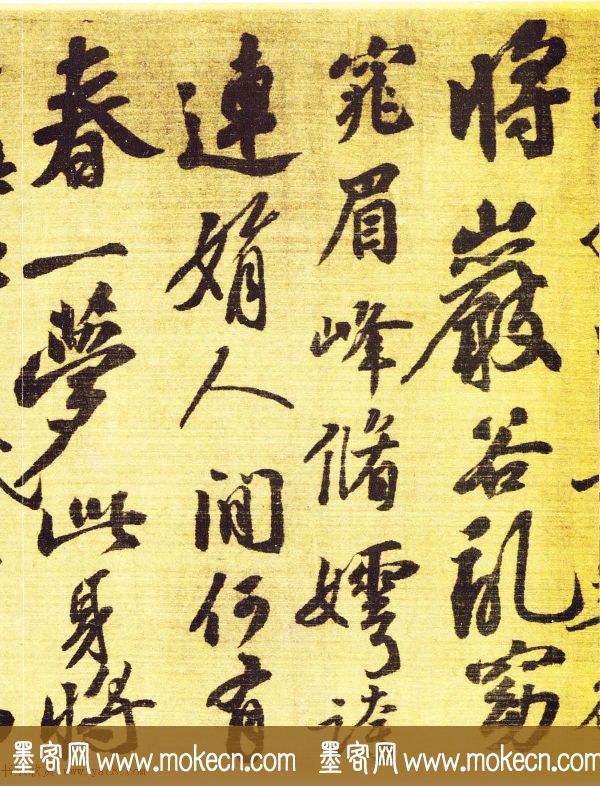 將巖谷亂窈
窕眉峰脩嫮誇
連娟人間何有
春一夢此身將
墨客网 www.mokecn.com 墨客网 www.mokecn.com